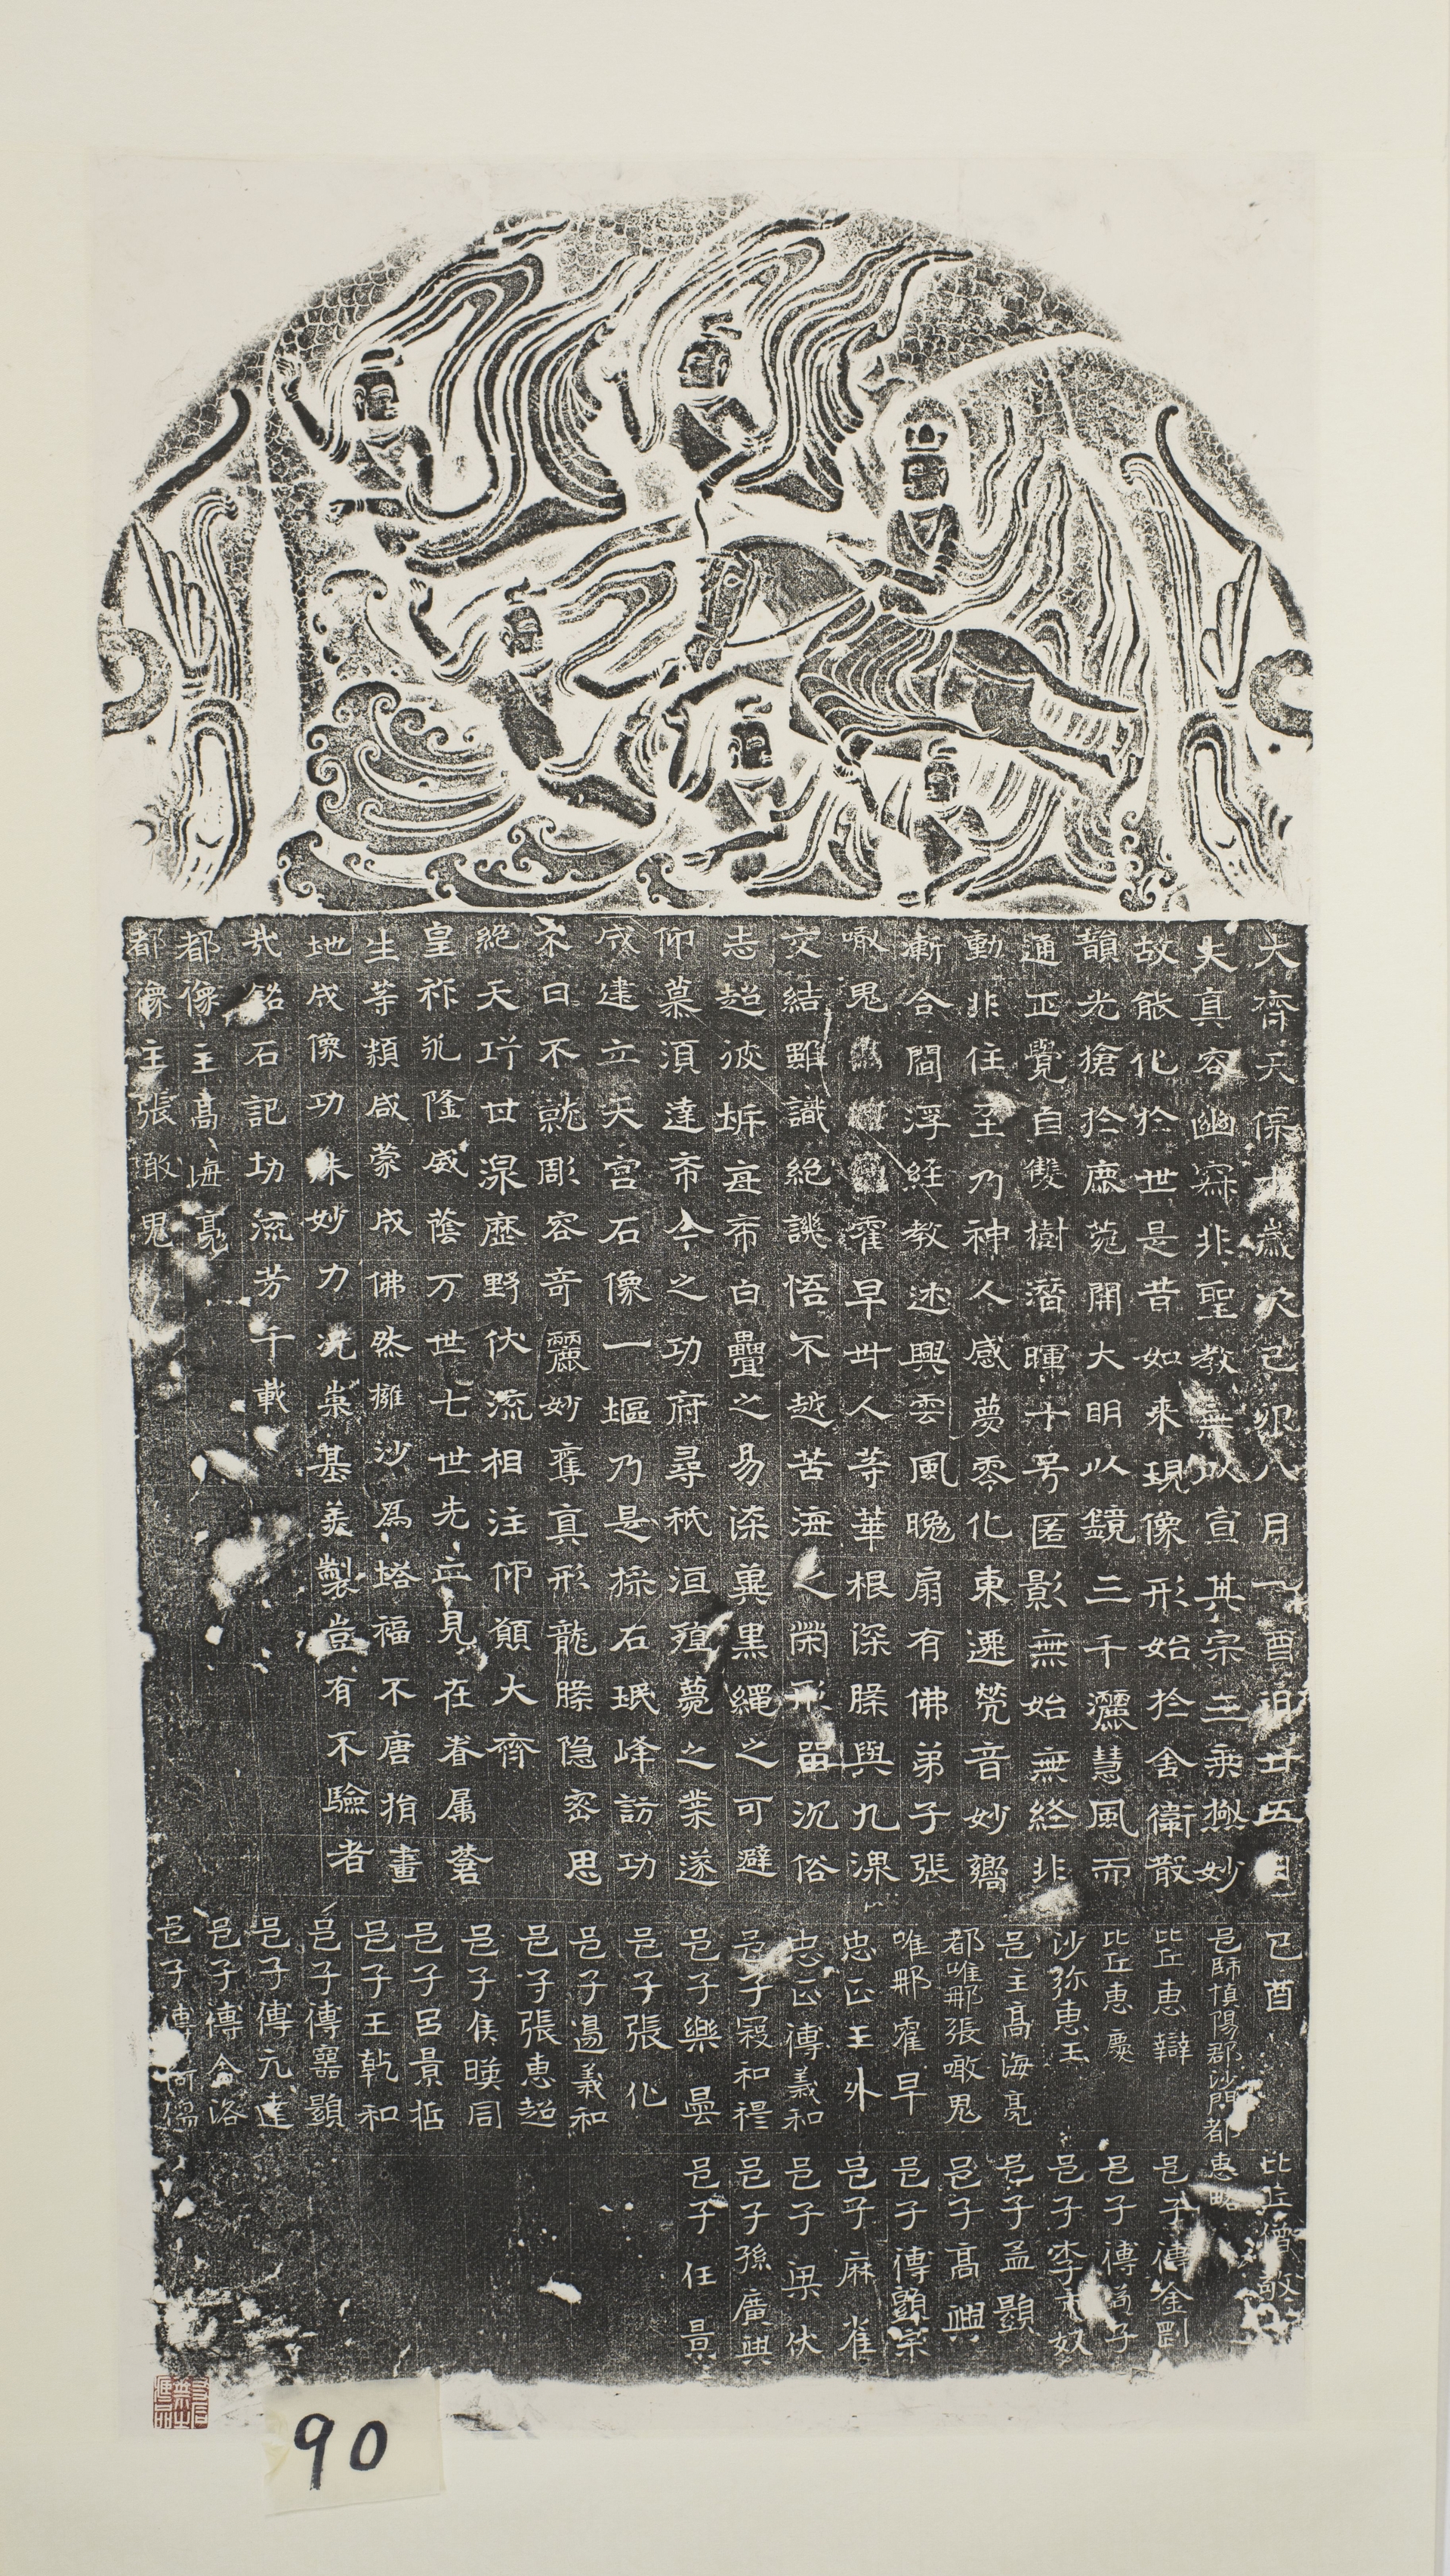 大齊天保十歲次己卯八月一酉日廿五日己酉 比丘僧敬
夫真容幽寂非聖教無以宣其宗三乘極妙
故能化於世是昔如来現像形始於舍衛散
韻光搶於鹿菀開大明以鏡三千灑慧風而
通正覺自雙樹潛暉十号匿影無始無終非
動非住至乃神人感夢零化東還梵音妙嚮
漸合閻浮經教述興雲風晚扇有佛弟子張
噉鬼 霍早丗人等華根深滕與九漯
交結雖識絶誂悟不越苦海之榮形嵒沉俗
志超彼坼每希白疊之易染糞黒繩之可避
仰慕須達希今之功府尋秖洹殖薨之業遂
咸建立天宮石像一塸乃是採石珉峰訪功
不日不就彫容奇麗妙奪真形龍滕隐密思
絶天巧丗淥歷野伏流相注仰願大齊
皇祚永隆威蔭万世七世先亡見在眷属蒼
生等類咸蒙成佛然擁沙爲塔福不唐捐畫
地成像功殊妙力况崇基美製豈有不驗者
㢤銘石記功流芳千載
都像主髙海亮
都像主張噉鬼
邑師慎陽郡沙門都惠略
比丘惠辯
比丘惠慶
沙弥惠玉
邑主髙海亮
都唯那張噉鬼
唯那霍早
忠正王外
忠正傅義和
邑子寇和穆
邑子樂曇
邑子張化
邑子馮義和
邑子張惠超
邑子侯暎周
邑子呂景哲
邑子王乾和
邑子傅嚣顯
邑子傅元達
邑子傅含洛
邑子傅阿傷
邑子傅金剛
邑子傅為子
邑子李市奴
邑子孟顯
邑子髙興
邑子傅顯宗
邑子麻雀
邑子梁伏
邑子孫廣興
邑子任景
90